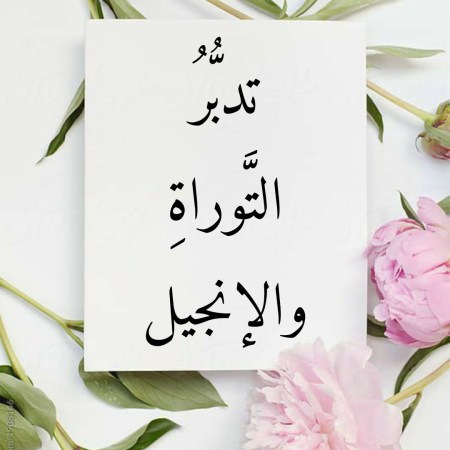 تدبُّرُ
التَّوراةِ
والإنجيل